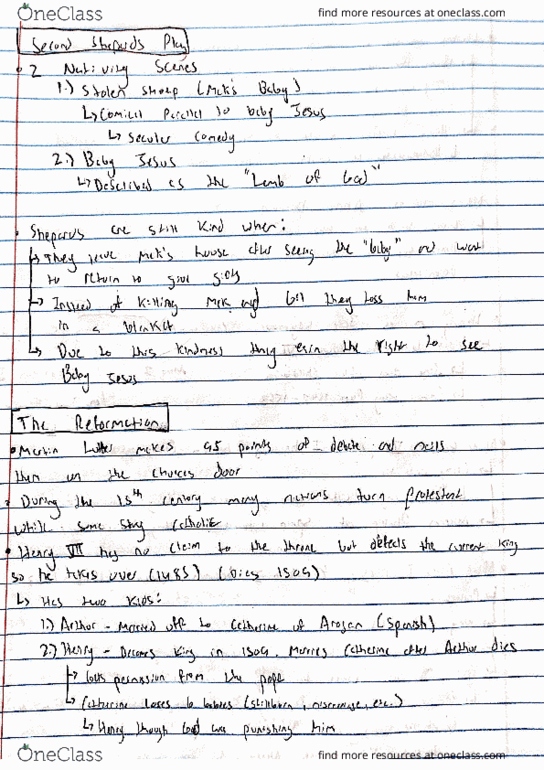 OneClass
find more resources at oneclass.com
Second Sheperds Play
• 2 Nativity Scenes
1.) Stolen sheep (Mak's Baby)
↳ Comical Parallel to baby Jesus
↳ Secular comedy
2.) Baby Jesus
↳ Described as the "Lamb of God"
• Sheperds are still kind when:
↳ They leave Mak's house after seeing the "baby" and want
to return to give gifts
↳ Instead of killing Mak and Gill they toss him
in a blanket
↳ Due to this kindness they earn the right to see
Baby Jesus
The Reformation
• Martin Luther makes 95 points of debate and nails
them on the churches door
• During the 15th century many nations turn Protestant
while some stay Catholic
• Henry VII has no claim to the throne but defeats the current king
so he takes over (1485) (Dies 1509)
↳ Has two kids:
1.) Arthur - Married off to Catharine of Aragan (Spanish)
2.) Henry - Becomes king in 1509. Marries Catharine after Arthur dies
↳ Gets permission from the pope
↳ Catharine loses 6 babies (stillborn, miscarriage, etc.)
↳ Henry though God was punishing him
OneClass
find more resources at oneclass.com